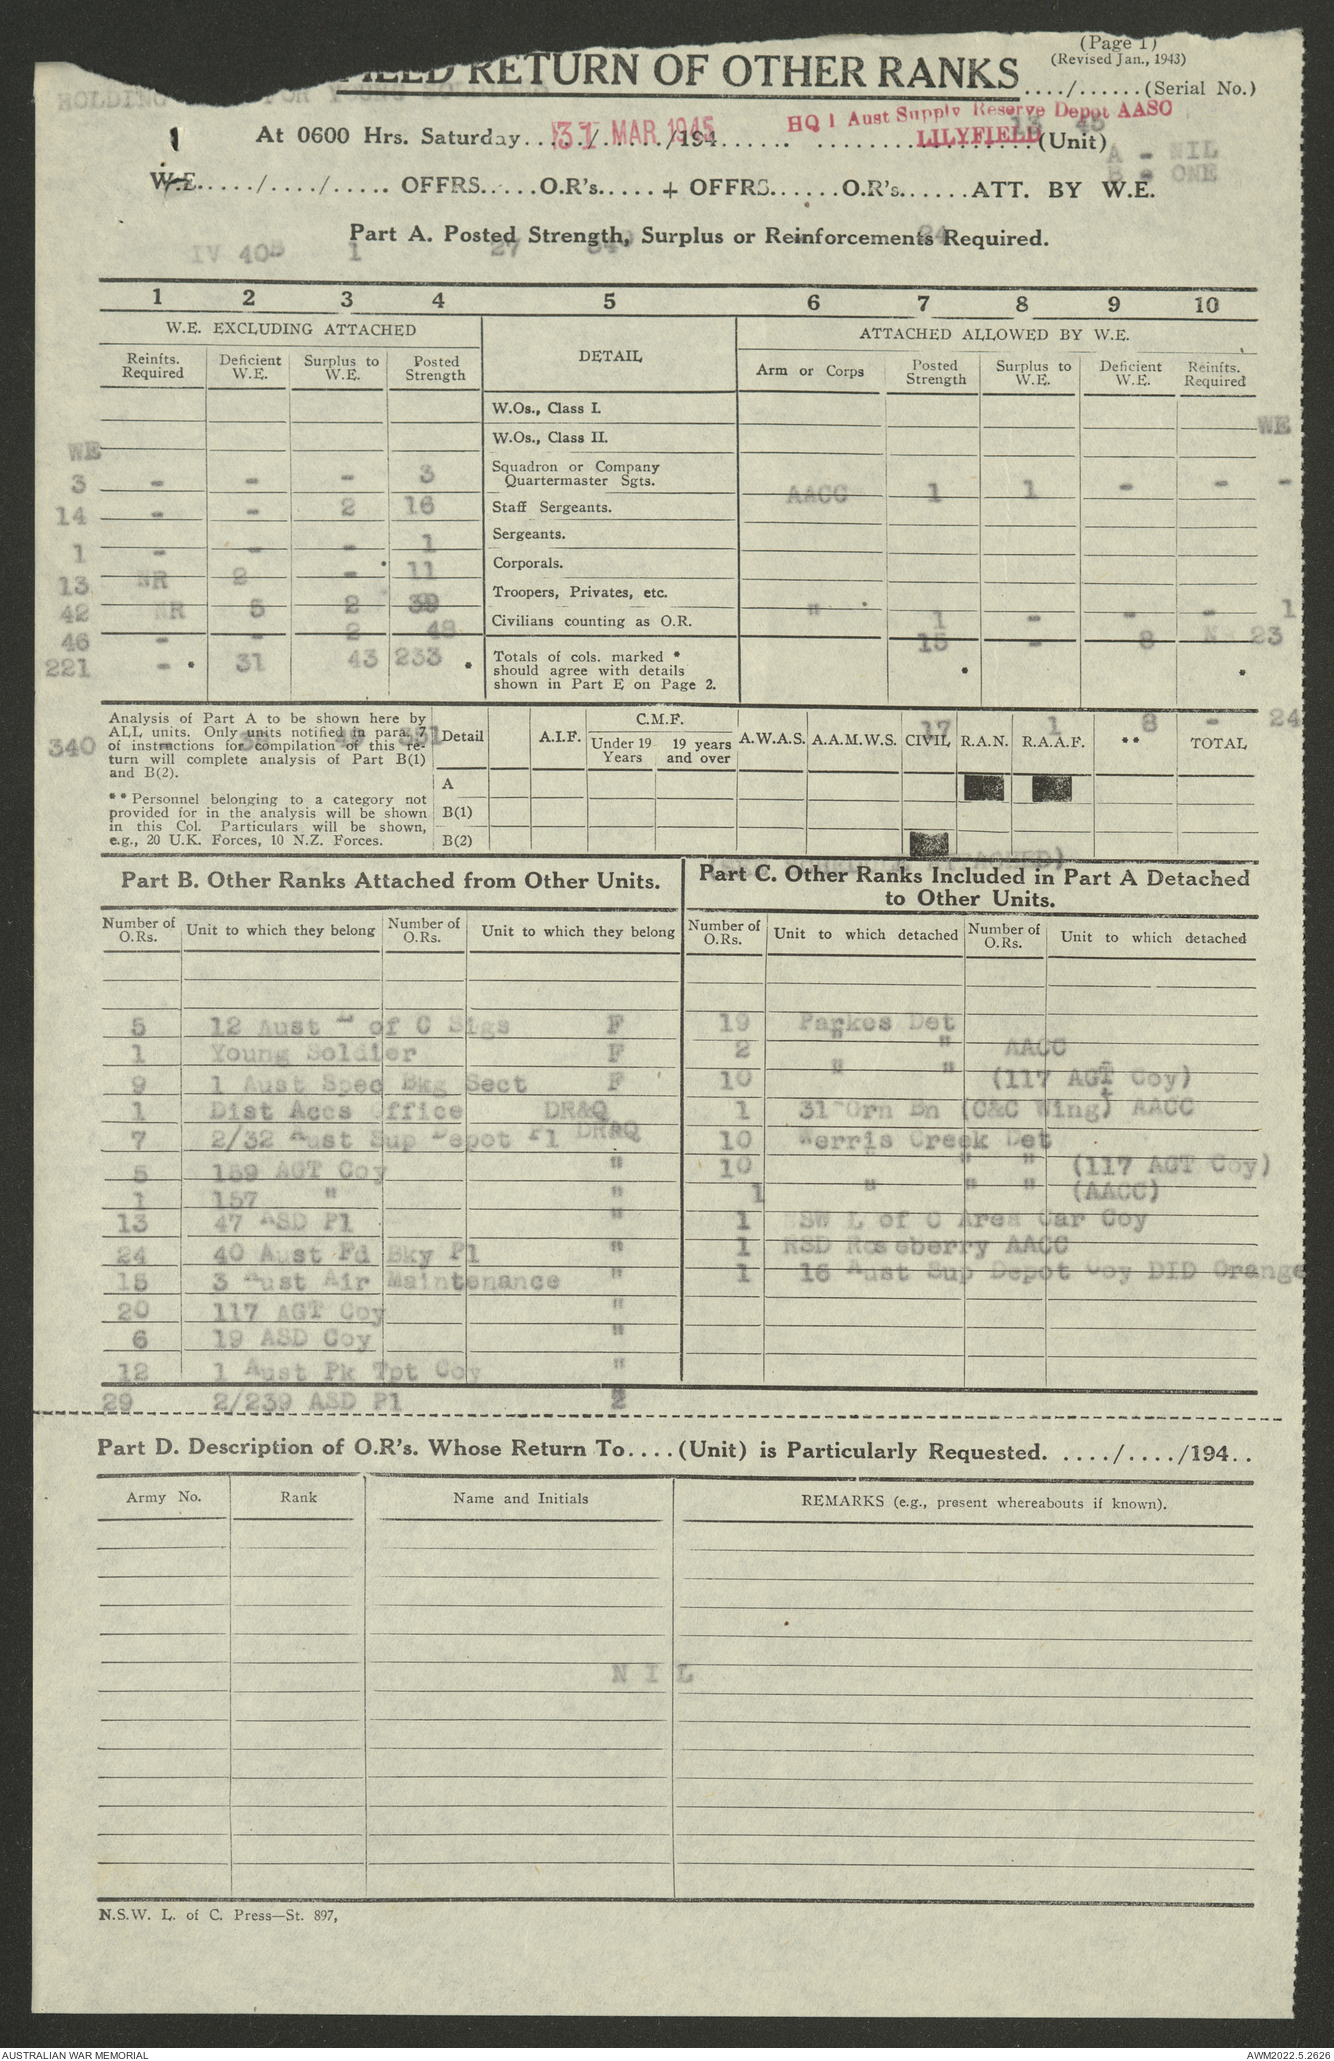 (Page 1)
(Revised Jan., 1943)
FIELD RETURN OF OTHER RANKS ..../......(Serial No.)
HOLDING FOR YOUNG
HQ 1 Aust Supply Reserve Depot AASC
LILYFIELD
13 45
1 At 0600 Hrs. Saturday 31 MAR 1945 /194...... (Unit)
A - NIL
B - ONE
W.E...../..../..... OFFRS.....O.R's.....+ OFFRS......O.R's......ATT. BY W.E.
Part A. Posted Strength, Surplus or Reinforcements Required.
IV 40B 1 27 340 24
1 2 3 4 5 6 7 8 9 10
W.E. EXCLUDING ATTACHED DETAIL ATTACHED ALLOWED BY W.E.
Reinfts. Required Deficient W.E. Surplus to W.E. Posted Strength Arm or Corps Posted Strength Surplus to W.E. Deficient W.E. Reinfts. Required
W.Os., Class I.
WE
W.Os., Class II.
WE
Squadron or Company
Quartermaster Sgts.
3 - - - 3
AACC 1 1 - - -
14 - - 2 16 Staff Sergeants.
Sergeants.
1 - - - 1
Corporals.
13 NR 2 - 11
Troopers, Privates, etc.
42 NR 5 2 39 " 1 - - - 1
Civilians counting as O.R.
46 - - 2 48 15 - 8 N 23
221 - * 31 43 233 * Totals of cols. marked *
should agree with details
shown in Part E on Page 2.
* *
Analysis of Part A to be shown here by
ALL units. Only units notified in para. 7
of instructions for compilation of this re-
turn will complete analysis of Part B(1)
and B(2).
340 - 49
17 1 8 - 24
Detail A.I.F. C.M.F. Under 19 Years 19 years and over A.W.A.S. A.A.M.W.S. CIVIL R.A.N. R.A.A.F. ** TOTAL
A
** Personnel belonging to a category not
provided for in the analysis will be shown
in this Col. Particulars will be shown,
e.g., 20 U.K. Forces, 10 N.Z. Forces.
B(1)
B(2)
Part B. Other Ranks Attached from Other Units.
Part C. Other Ranks Included in Part A Detached
to Other Units.
Number of O.Rs. Unit to which they belong Number of O.Rs. Unit to which they belong
Number of O.Rs. Unit to which detached Number of O.Rs. Unit to which detached
5 12 Aust L of C Sigs F
1 Young Soldier F
9 1 Aust Spec Bkg Sect F
1 Dist Accs Office DR&Q
7 2/32 Aust Sup Depot Pl DR&Q
5 159 AGT Coy "
1 157 " "
13 47 ASD Pl "
24 40 Aust Fd Bky Pl "
15 3 Aust Air Maintenance "
20 117 AGT Coy "
6 19 ASD Coy "
12 1 Aust Pk Tpt Coy "
29 2/239 ASD Pl
19 Parkes Det
2 " " AACC
10 " " (117 AGT Coy)
1 31 Grn Bn (C&C Wing) AACC
10 Werris Creek Det
10 " " " (117 AGT Coy)
1 " " " (AACC)
1 NSW L of C Area Car Coy
1 RSD Roseberry AACC
1 16 Aust Sup Depot Coy DID Orange
Part D. Description of O.R's. Whose Return To....(Unit) is Particularly Requested. ..../..../194..
Army No. Rank Name and Initials REMARKS (e.g., present whereabouts if known).
N I L
N.S.W. L. of C. Press—St. 897,
AUSTRALIAN WAR MEMORIAL
AWM2022.5.2626